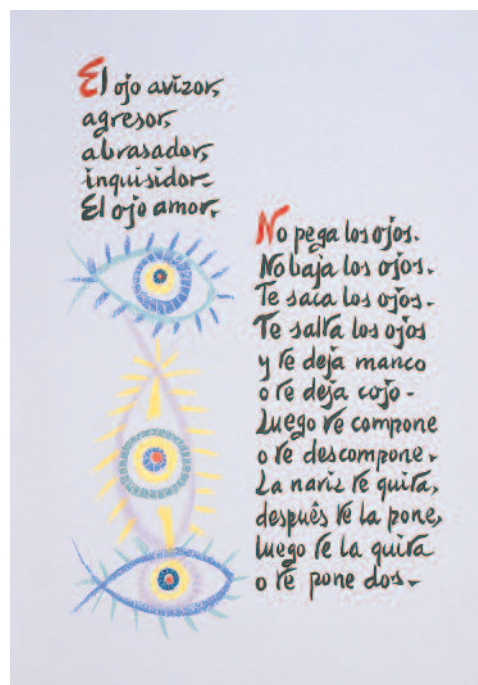 El ojo avizor,
agresor,
abrasador,
inquisidor.
El ojo amor.
No pega los ojos.
No baja los ojos.
Te saca los ojos.
Te salta los ojos
y te deja manco
o te deja cojo.
Luego te compone
o te descompone.
La nariz te quita,
después te la pone,
luego te la quita
o te pone dos.